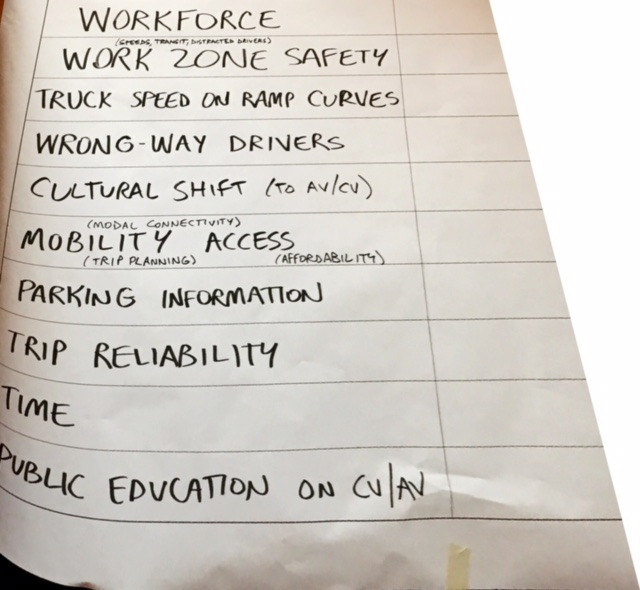 WORKFORCE
(SPEEDS, TRANSIT, DISTRACTED DRIVERS)
WORK ZONE SAFETY
TRUCK SPEED ON RAMP CURVES
WRONG-WAY DRIVERS
CULTURAL SHIFT (TO AV/CV)
(MODAL CONNECTIVITY)
MOBILITY ACCESS
(TRIP PLANNING) (AFFORDABILITY)
PARKING INFORMATION
TRIP RELIABILITY
TIME
PUBLIC EDUCATION ON CV/AV